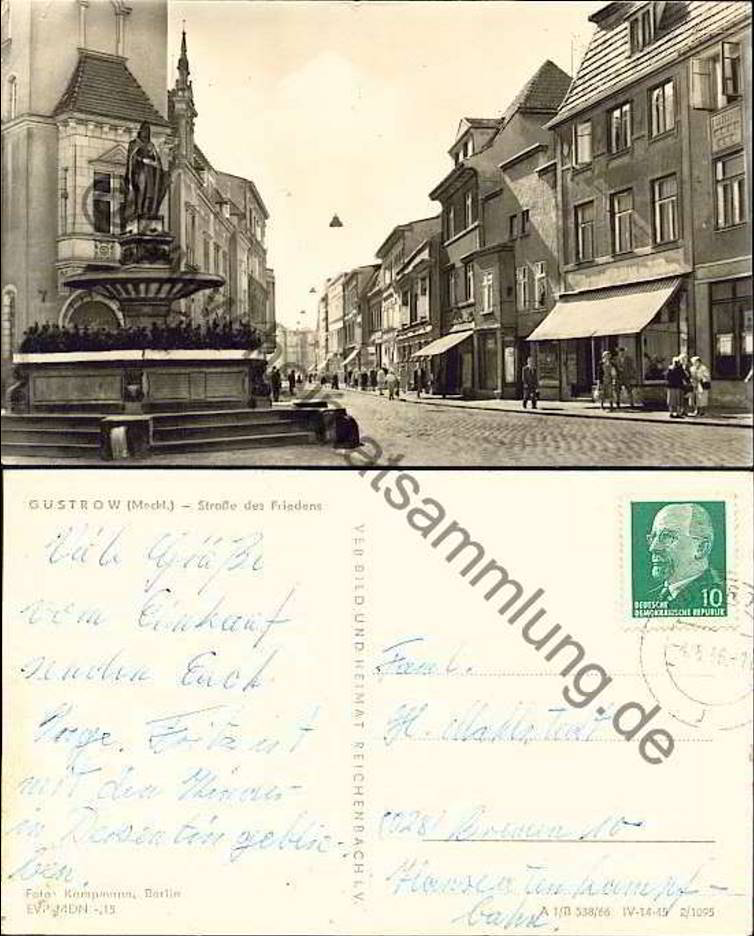 GÜSTROW (Meckl.) – Straße des Friedens
Viele Grüße
vom Einkauf
senden Euch
Fritz ist
mit den Kindern
in Dersentin geblie-
ben.
Foto: Kampmann, Berlin
EVP MDN -,15
VEB BILD UND HEIMAT REICHENBACH I. V.
10
DEUTSCHE
DEMOKRATISCHE REPUBLIK
Faml.
H.
(028) Bremen 10
Hanseatenkampf-
bahn.
A 1/B 538/66 IV-14-45 2/1095
ansichtskartensammlung.de